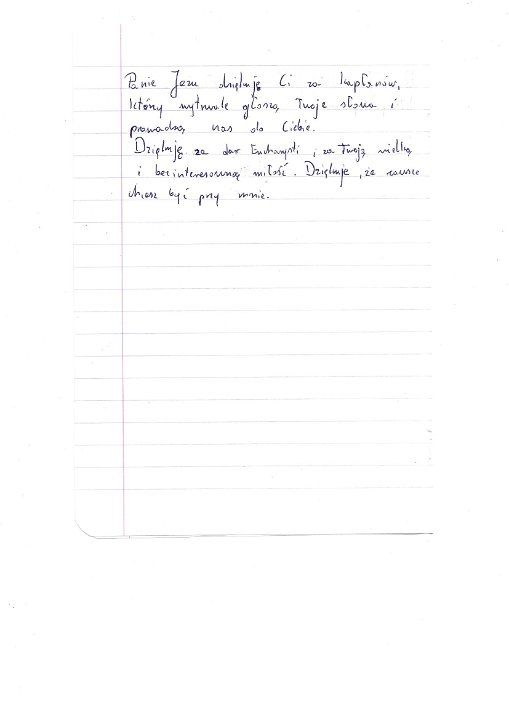 Panie Jezu dziękuję Ci za kapłanów,
którzy wytrwale głoszą Twoje słowa i
prowadzą nas do Ciebie.
Dziękuję za dar Eucharystii, za Twoją wielką
i bezinteresowną miłość. Dziękuje, że zawsze
chcesz być przy mnie.